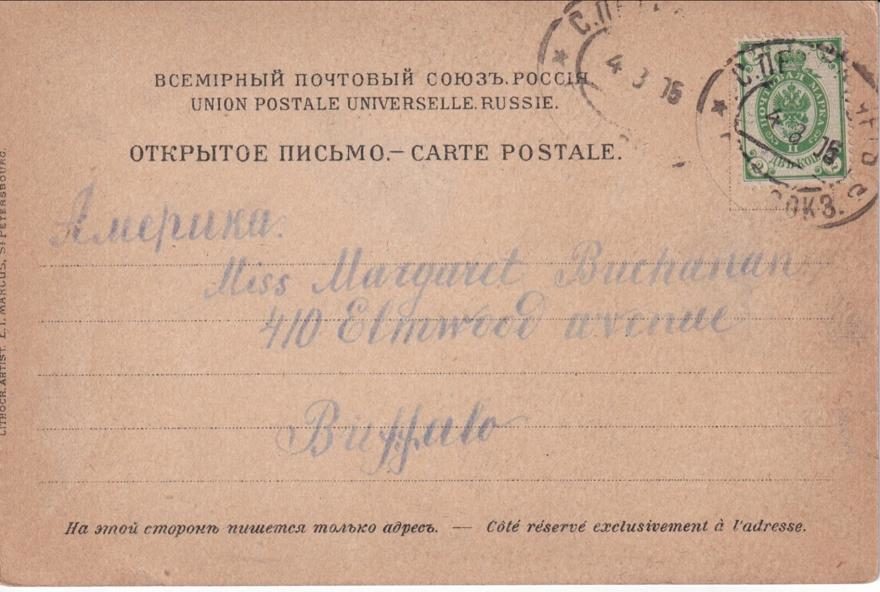 ВСЕМІРНЫЙ ПОЧТОВЫЙ СОЮЗЪ.РОССІЯ.
UNION POSTALE UNIVERSELLE.RUSSIE.
ОТКРЫТОЕ ПИСЬМО.— CARTE POSTALE.
С.ПЕТ
4 3
С.ПЕ
4 3
ВОКЗ.
ПОЧТОВАЯ МАРКА
ДВѢ КОП.
Америка.
Miss Margaret Buchanan
410 Elmwood avenue
Buffalo
На этой сторонѣ пишется только адресъ. — Côté réservé exclusivement à l'adresse.
LITHOCR.ARTIST. E.I. MARCUS, ST PETERSBOURG.